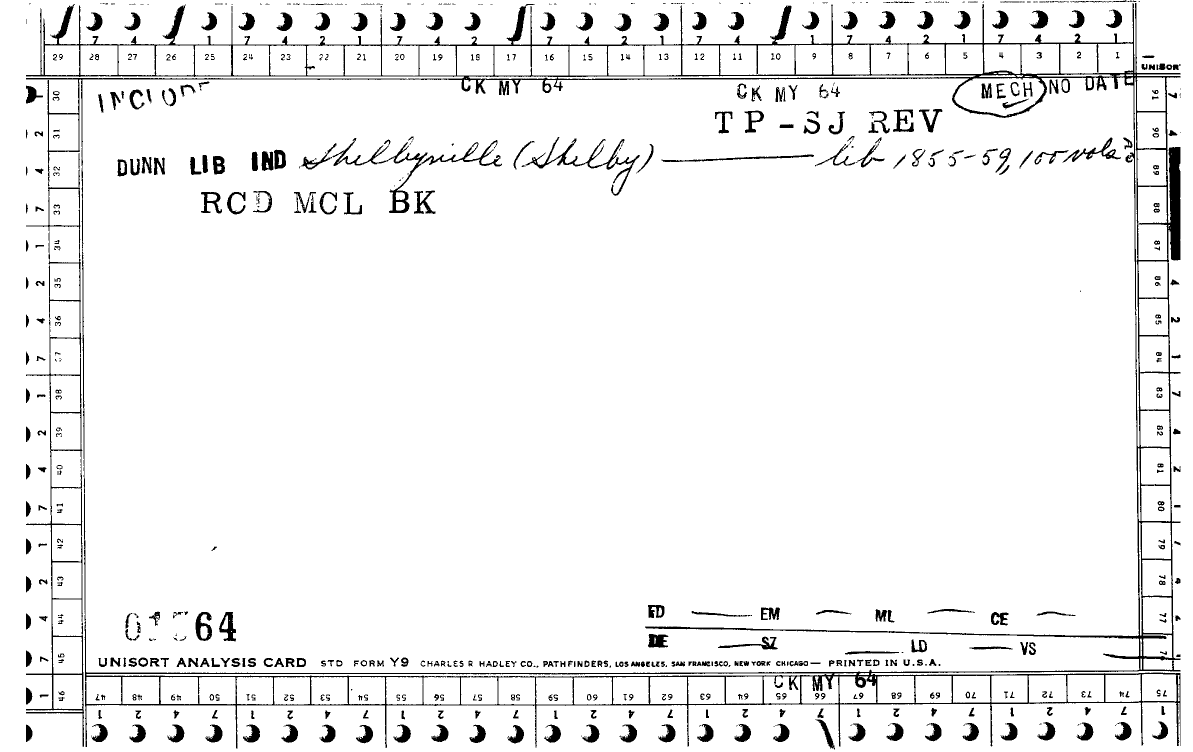 7 4 2 1 7 4 2 1 7 4 2 1 7 4 2 1 7 4 2 1 7 4 2 1 7 4 2 1
29 28 27 26 25 24 23 22 21 20 19 18 17 16 15 14 13 12 11 10 9 8 7 6 5 4 3 2 1
UNISORT
INCLUDE CK MY 64 CK MY 64 MECH NO DATE
TP-SJ REV
DUNN LIB IND Shelbyville (Shelby) — lib 1855-59, 100 vols
RCD MCL BK
30 31 32 33 34 35 36 37 38 39 40 41 42 43 44 45 46
91 90 89 88 87 86 85 84 83 82 81 80 79 78 77 76 75
64
FD — EM — ML — CE —
DE — SZ — LD — VS
UNISORT ANALYSIS CARD STD FORM Y9 CHARLES R HADLEY CO., PATHFINDERS, LOS ANGELES, SAN FRANCISCO, NEW YORK CHICAGO — PRINTED IN U.S.A.
CK MY 64
47 48 49 50 51 52 53 54 55 56 57 58 59 60 61 62 63 64 65 66 67 68 69 70 71 72 73 74 75
1 2 4 7 1 2 4 7 1 2 4 7 1 2 4 7 1 2 4 7 1 2 4 7 1 2 4 7 1